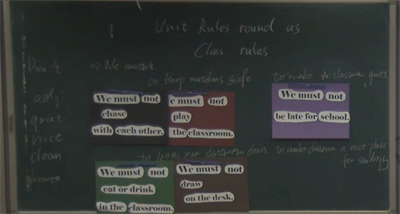 Unit Rules round us
Class rules
We must
keep ourselves safe
to make an classroom quiet
quiet
nice
clean
We must not
chase
with each other.
e must not
play
the classroom.
We must not
be late for school.
to keep our classroom clean
to make classroom a nice place
for studying
We must not
eat or drink
in the classroom.
We must not
draw
on the desk.